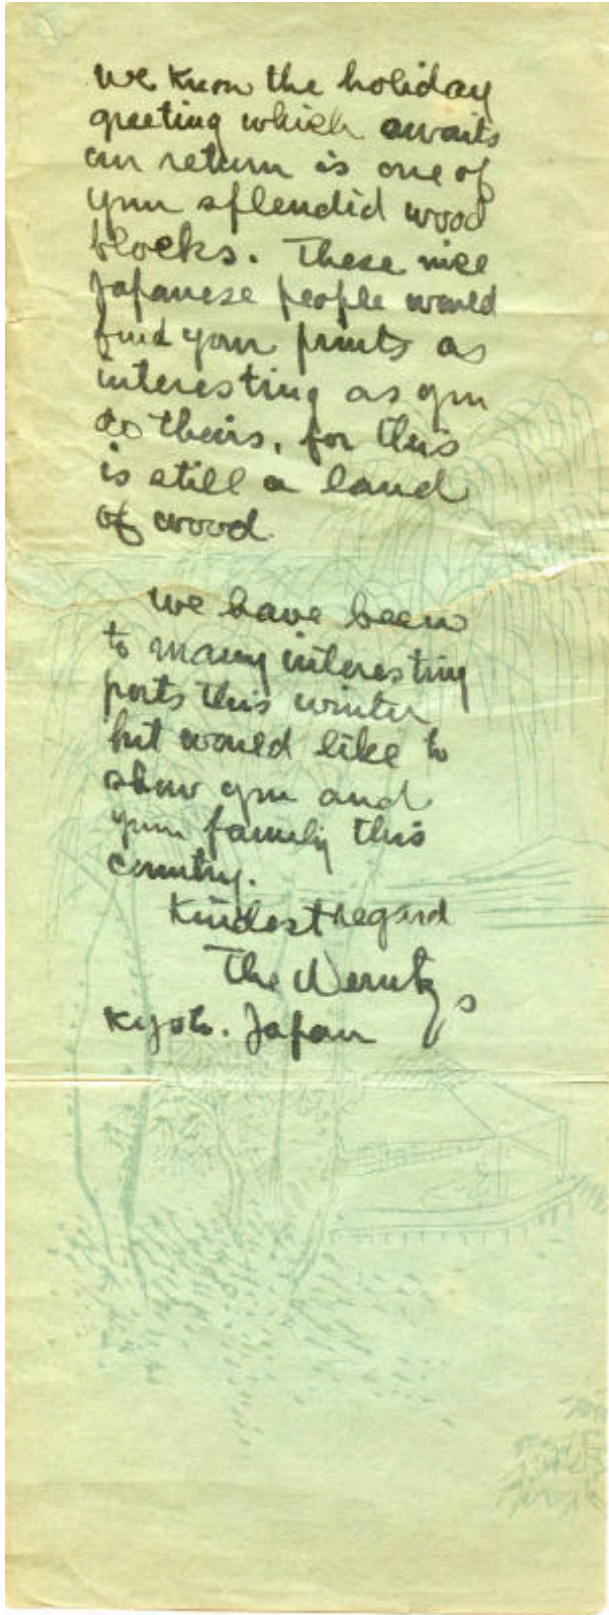 We know the holiday
greeting which awaits
our return is one of
your splendid wood
blocks. These nice
Japanese people would
find your prints as
interesting as you
do theirs, for this
is still a land
of wood.
We have been
to many interesting
ports this winter
but would like to
show you and
your family this
country.
Kindest regard
The
Kyoto. Japan